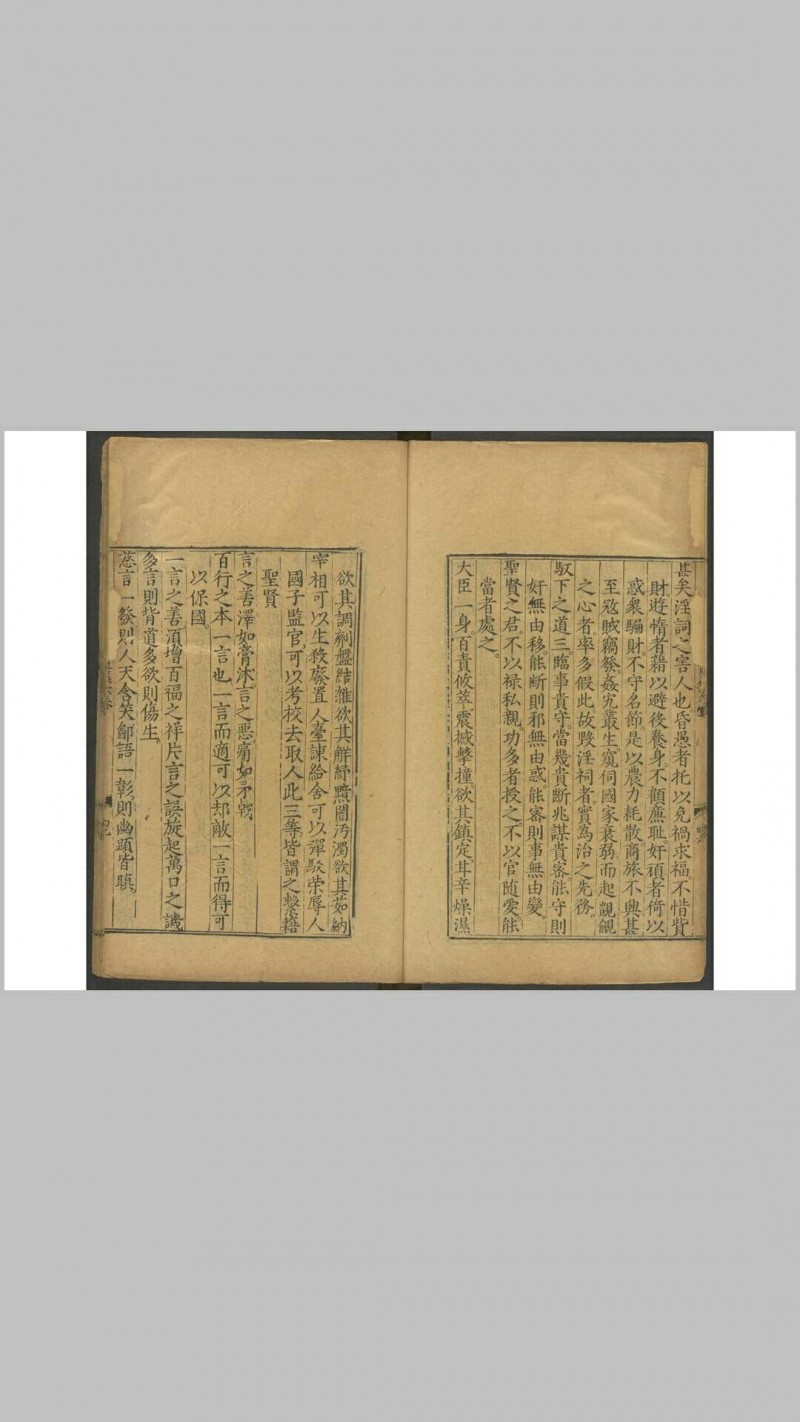 甚矣淫詞之害人也昏愚者托以免禍求福不惜貲
財遊惰者藉以避後養身不顧廉耻奸頑者倚以
惑衆騙財不守名節是以農力耗散商旅不興甚
至宼賊竊發姦宄叢生窺伺國家衰弱而起覬覦
之心者率多假此故毀淫祠者實為治之先務
馭下之道三臨事貴守當幾貴斷兆謀貴審能守則
奸無由移能斷則邪無由惑能審則事無由變
聖賢之君不以禄私親功多者授之不以官随愛能
當者處之
大臣一身百責攸萃震撼擊撞欲其鎮定耳辛燥濕
欲其調劑盤結雜欲其解紓黯闇汚濁欲其茹納
宰相可以生殺廢置人臺諫給舍可以彈駁荣辱人
國子監官可以考校去取人此三等皆謂之繫籍
聖賢
言之善澤如膏沐言之惡痛如矛戟
百行之本一言也一言而適可以却敵一言而得可
以保國
一言之善湏增百福之祥片言之誤旋起萬口之譏
多言則背道多欲則傷生
慈言一發則人天含笑鄙語一彰則幽顕皆瞋